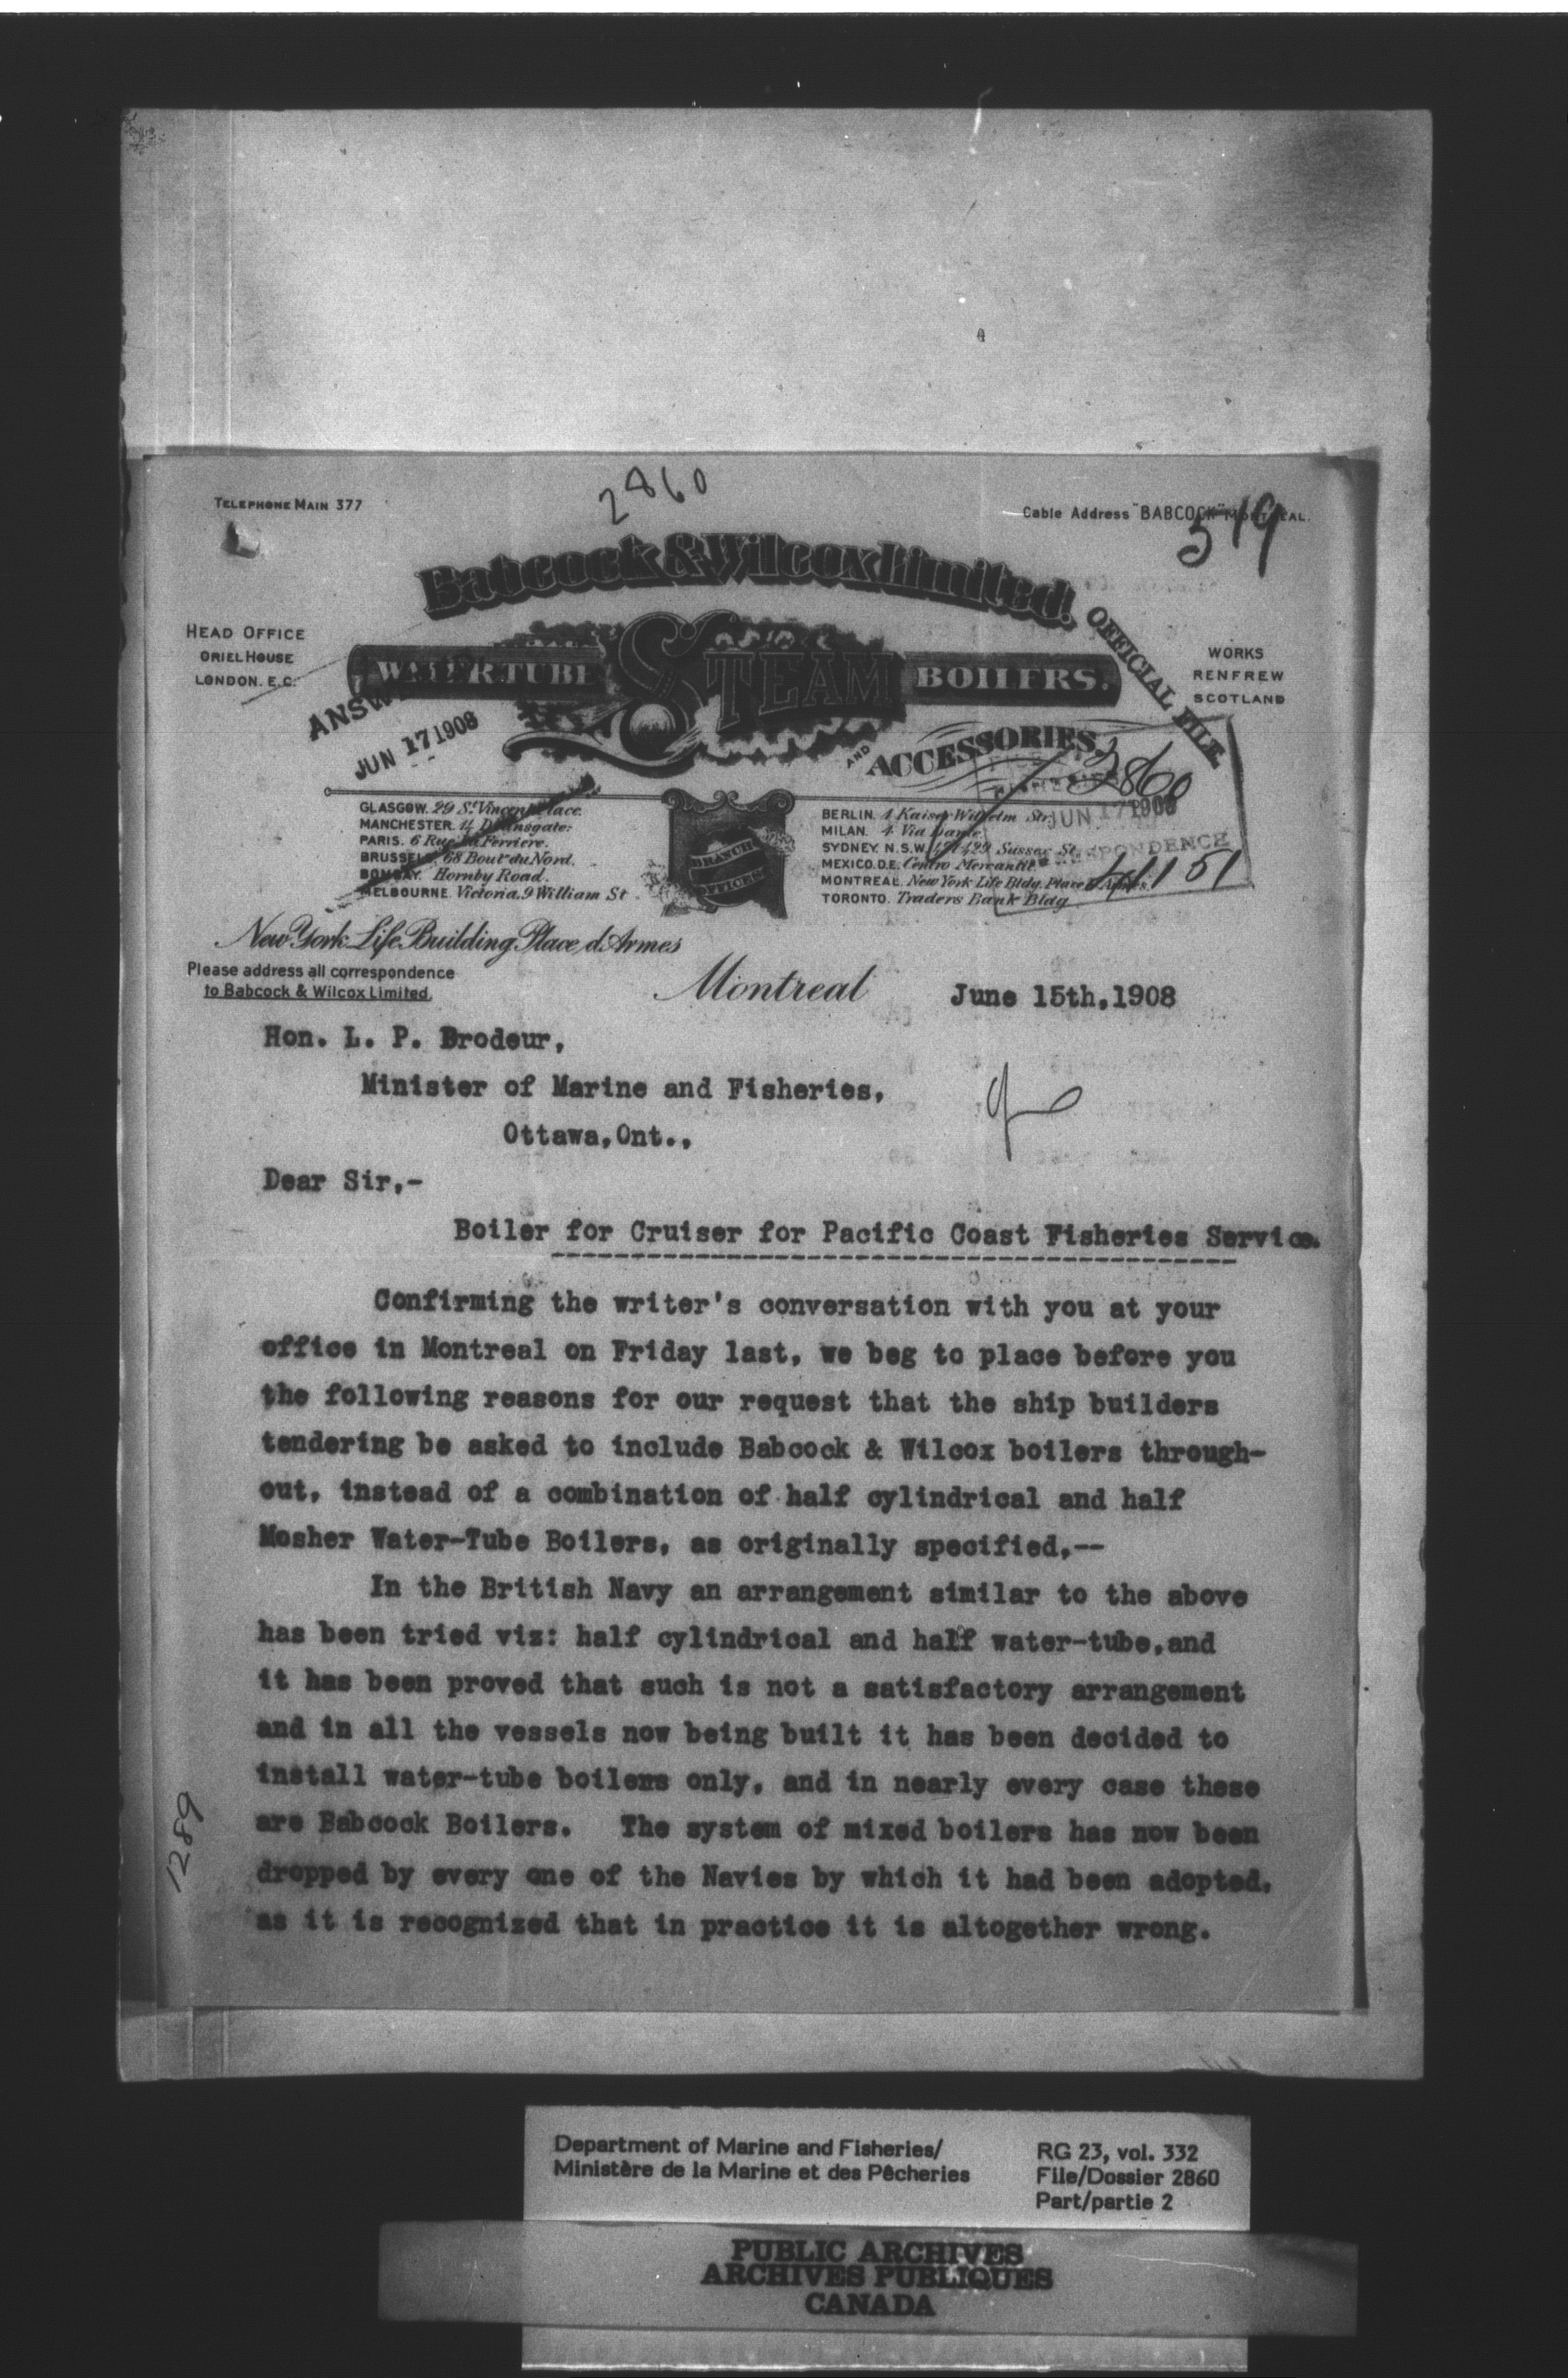 2860
TELEPHONE MAIN 377
Cable Address "BABCOCK" MONTREAL.
519
Babcock & Wilcox Limited.
HEAD OFFICE
ORIEL HOUSE
LONDON. E.C.
WATER TUBE STEAM BOILERS.
AND ACCESSORIES.
WORKS
RENFREW
SCOTLAND
OFFICIAL FILE
JUN 17 1908
2860
JUN 17 1908
CORRESPONDENCE
41151
GLASGOW. 29 St. Vincent Place.
MANCHESTER. 14 Deansgate.
PARIS. 6 Rue La Ferriere.
BRUSSELS. 68 Boult du Nord.
BOMBAY. Hornby Road.
MELBOURNE. Victoria. 9 William St
BRANCH
OFFICES
BERLIN. 1 Kaiser Wilhelm Str.
MILAN. 4 Via Dante.
SYDNEY. N.S.W. 427/429 Sussex St.
MEXICO. D.E. Centro Mercantil.
MONTREAL. New York Life Bldg. Place d'Armes.
TORONTO. Traders Bank Bldg
New York Life Building, Place d'Armes
Please address all correspondence
to Babcock & Wilcox Limited.
Montreal June 15th, 1908
Hon. L. P. Brodeur,
Minister of Marine and Fisheries,
Ottawa, Ont.,
Dear Sir,-
Boiler for Cruiser for Pacific Coast Fisheries Service.
Confirming the writer's conversation with you at your
office in Montreal on Friday last, we beg to place before you
the following reasons for our request that the ship builders
tendering be asked to include Babcock & Wilcox boilers through-
out, instead of a combination of half cylindrical and half
Mosher Water-Tube Boilers, as originally specified,--
In the British Navy an arrangement similar to the above
has been tried viz: half cylindrical and half water-tube, and
it has been proved that such is not a satisfactory arrangement
and in all the vessels now being built it has been decided to
install water-tube boilers only, and in nearly every case these
are Babcock Boilers. The system of mixed boilers has now been
dropped by every one of the Navies by which it had been adopted,
as it is recognized that in practice it is altogether wrong.
1289
Department of Marine and Fisheries/
Ministère de la Marine et des Pêcheries
RG 23, vol. 332
File/Dossier 2860
Part/partie 2
PUBLIC ARCHIVES
ARCHIVES PUBLIQUES
CANADA